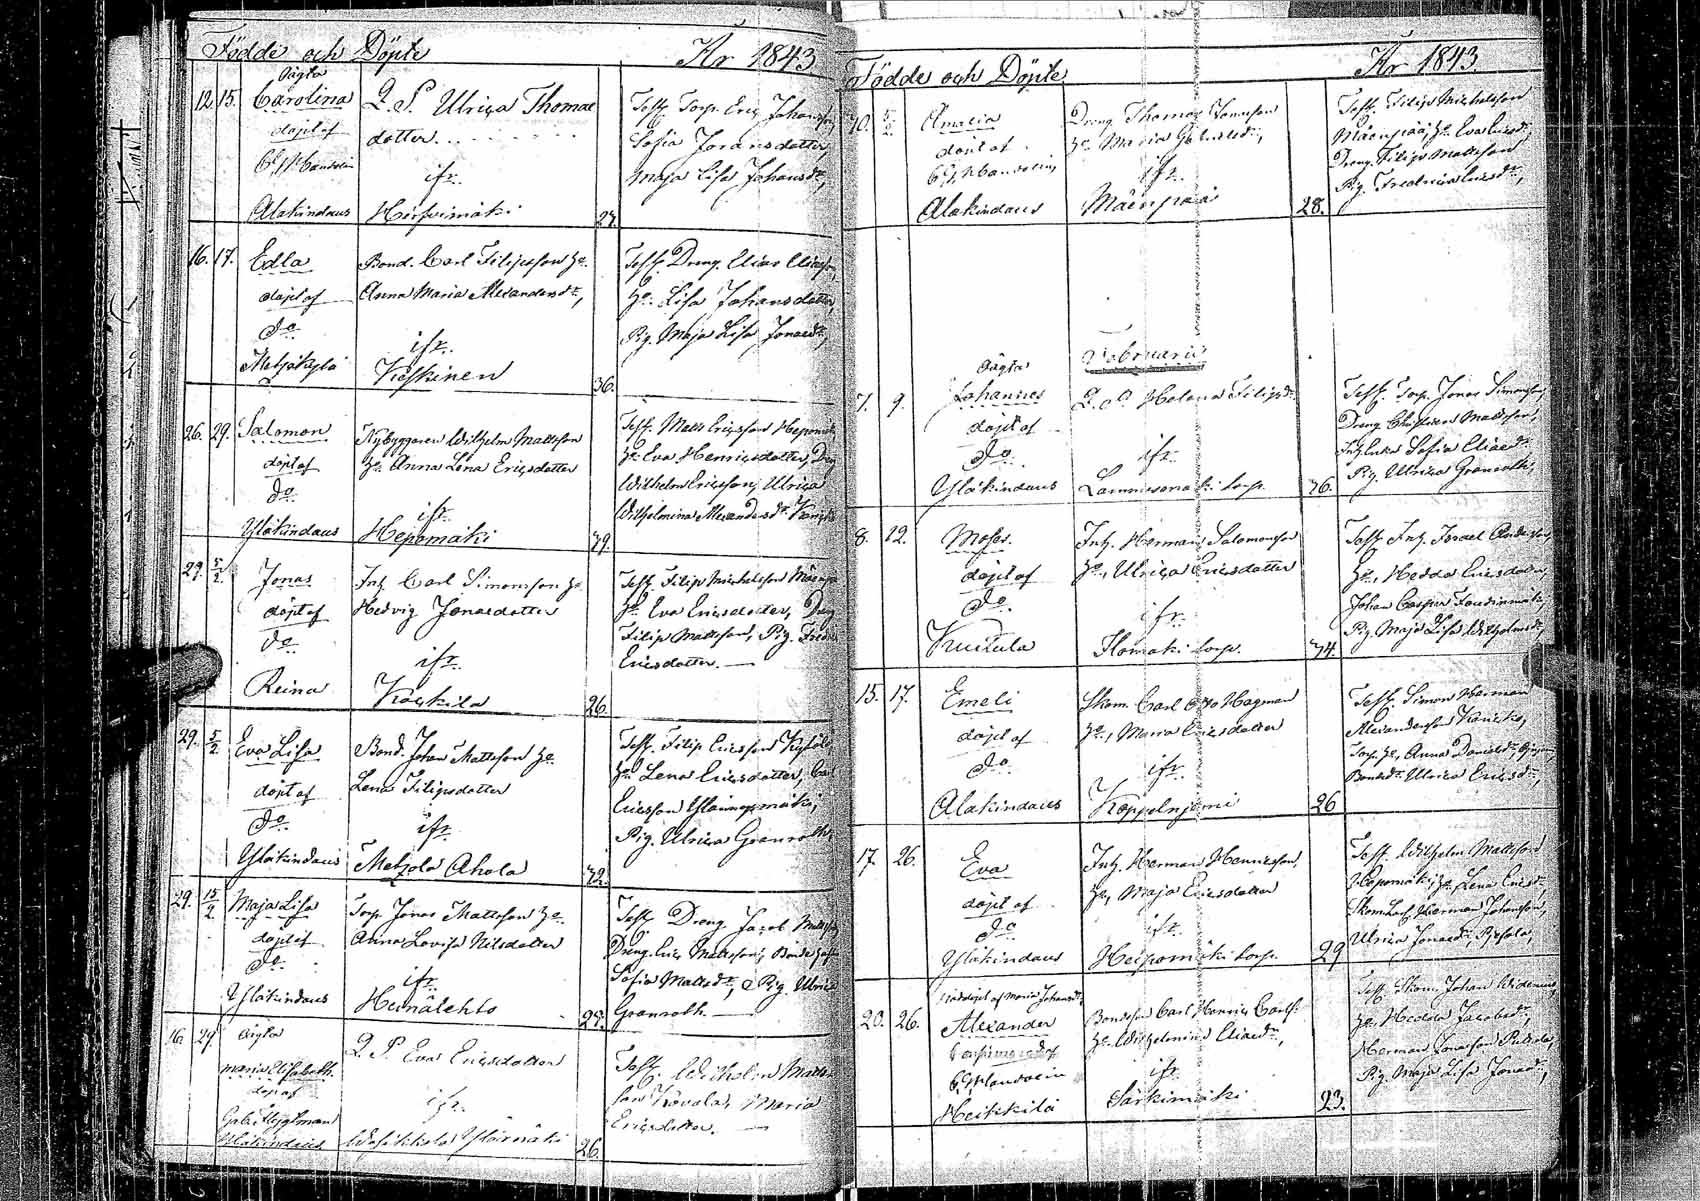 Födde och Döpte År 1843
12. 15. Oägta
Carolina
döpt af
Alakindaus
Q. P. Ulrica Thomae
dotter
ifr.
Hirfvimäki
27.
Test. Torp. Eric Johansson,
Sofia Joransdotter,
Maja Lisa Johansdr,
16. 17. Edla
döpt af
do
Metsäkylä
Bond. Carl Filipsson Ho.
Anna Maria Alexandersdr,
ifr.
Koskinen
36.
Test. Dreng. Elias Eliasson,
Ho. Lisa Johansdotter,
Pig. Maja Lisa Jonaedr,
26. 29. Salomon
döpt af
do
Yläkindaus
Nybyggaren Wilhelm Mattsson
Ho. Anna Lena Ericsdotter
ifr.
Hepomäki
39.
Test. Matts Ericsson Hepomäki
Ho. Eva Henricsdotter, Dreng
Wilhelm Ericsson, Ulrica
Wilhelmina Alexandersdr
29. 5/2 Jonas
döpt af
do
Reina
Inh. Carl Simonsson Ho
Hedvig Jonaedotter
ifr.
Koskila
26.
Test. Filip Michelsson Mäenpää
Ho. Eva Ericsdotter, Dreng
Filip Mattsson, Pig. Fredrica
Ericsdotter.
29. 5/2 Eva Lisa
döpt af
do
Yläkindaus
Bond. Johan Mattsson Ho
Lena Filipsdotter
ifr.
Metzola Ahola
42.
Test. Filip Ericsson
Ho. Lena Ericsdotter, Carl
Ericsson
Pig. Ulrica Granroth.
29. 15/2 Maja Lisa
döpt af
do
Yläkindaus
Torp. Jonas Mattsson Ho.
Anna Lovisa Nilsdotter
ifr.
Heinälehto
28.
Test. Dreng. Jacob Mattsson
Dreng. Eric Mattsson,
Sofia Mattsdr, Pig. Ulrica
Granroth.
16 29 Oägta
Maria Elisabeth
döpt af
Yläkindaus
Q. P. Eva Ericsdotter
ifr.
26.
Test. Wilhelm Matts
son Maria
Ericsdotter.
Födde och Döpte År 1843.
30. 5/2 Amalia
döpt af
Alakindaus
Dreng Thomas Jonasson
Ho Maria Gabrielsdr,
ifr.
Mäenpää
28.
Test. Filip Michelsson
Mäenpää, Ho. Eva Ericsdr,
Dreng. Filip Mattsson,
Pig. Fredrica Ericsdr,
Februarii
7. 9. Oägta
Johannes
döpt af
do
Yläkindaus
Q. P. Helena Filipsdr
ifr.
torp.
36.
Test. Torp. Jonas Simonsson,
Dreng Christian Mattsson,
Sofia Eliaedr,
Pig. Ulrica Granroth,
8. 12. Moses
döpt af
do.
Kuitula
Inh. Herman Salomonsson
Ho, Ulrica Ericsdotter
ifr.
Ilomäki torp.
34.
Test. Inh. Israel Andersson
Ho, Hedda Ericsdotter,
Johan Casper
Pig. Maja Lisa Wilhelmsdr,
15. 17. Emeli
döpt af
do
Alakindaus
Skom. Carl Otto Hagman
Ho, Maria Ericsdotter
ifr.
Koppelnjemi
26
Test. Simon Herman
Alexandersson
Torp. Ho, Anna Danielsdr,
Bondedr Ulrica Ericsdr,
17. 26. Eva
döpt af
do
Yläkindaus
Inh. Herman Henricsson,
Ho, Maja Ericsdotter
ifr.
Heipomäki torp.
29
Test. Wilhelm Mattsson
Hepomäki, Ho. Lena Ericsdr,
Herman Johansson,
Ulrica Jonaedr,
20. 26. Nöddöpt af Maria Johansdr
Alexander
Heikkilä
Bondson Carl Henric Carlss.
Ho Wilhelmina Eliaedr,
ifr
Särkimäki
23.
Test. Skom. Johan Widenius,
Ho, Hedda Jacobsdr,
Herman Jonasson
Pig. Maja Lisa Jonaedr,